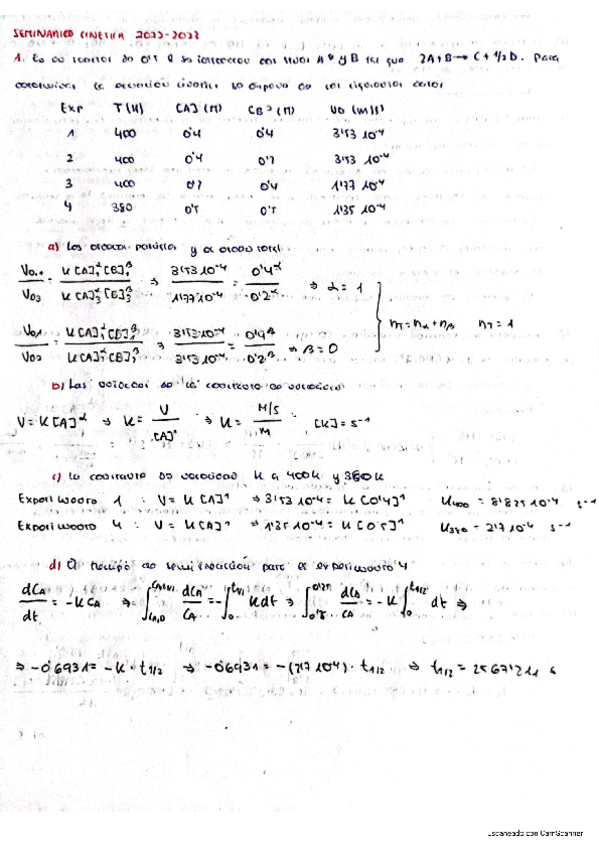 SEMINARIO CINETICA 2022-2023
1. En un reactor de 0'5 l se introducen A y B tal que 2A+B → C + 1/2 D. Para
determinar la ecuación se dispone de los siguientes datos
Exp T(K) [A] (M) [B] (M) Vo (M/s)
1 400 0'4 0'4 3'53 10⁻⁴
2 400 0'4 0'2 3'53 10⁻⁴
3 400 0'2 0'4 1'77 10⁻⁴
4 380 0'5 0'5 1'35 10⁻⁴
a) Los ordenes parciales y el orden total
Vo,1 / Vo3 = K[A]₁^α [B]₁^β / K[A]₃^α [B]₃^β ⇒ 3'53 10⁻⁴ / 1'77 10⁻⁴ = 0'4^α / 0'2^α ⇒ α = 1
nT = nα + nβ nT = 1
Vo1 / Vo2 = K[A]₁^α [B]₁^β / K[A]₂^α [B]₂^β ⇒ 3'53 10⁻⁴ / 3'53 10⁻⁴ = 0'4^β / 0'2^β ⇒ β = 0
b) Las unidades de la constante de velocidad
V = K[A]^α ⇒ K = V / [A]¹ ⇒ K = M/s / M [K] = s⁻¹
c) La constante de velocidad K a 400K y 380K
Experimento 1 : V = K[A]¹ ⇒ 3'53 10⁻⁴ = K[0'4]¹ K400 = 8'825 10⁻⁴ s⁻¹
Experimento 4 : V = K[A]¹ ⇒ 1'35 10⁻⁴ = K[0'5]¹ K380 = 2'7 10⁻⁴ s⁻¹
d) El tiempo de semireacción para el experimento 4
dCA / dt = -K CA ⇒ ∫ dCA / CA = -∫ K dt ⇒ ∫ dCA / CA = -K ∫₀^t1/2 dt ⇒
⇒ -0'6931 = -K · t1/2 ⇒ -0'6931 = -(2'7 10⁻⁴) · t1/2 ⇒ t1/2 = 2567'211 s
Escaneado con CamScanner